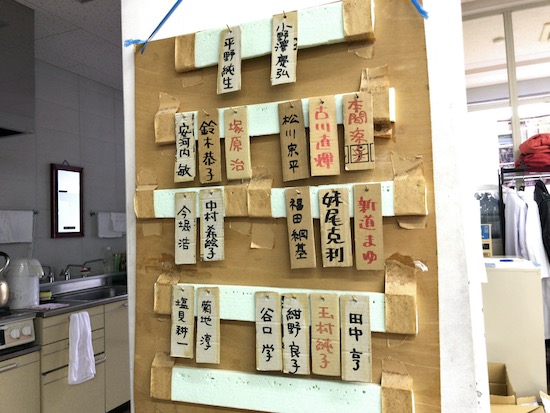 小野澤慶弘
平野純生
本間涼子
古川直哉
松川東平
塚原治
鈴木恭子
安河内敏
新道まゆ
妹尾克利
福田綱基
中村希絵子
今堀浩
田中亨
玉村純子
紺野良子
谷口学
菊地淳
塩見耕一